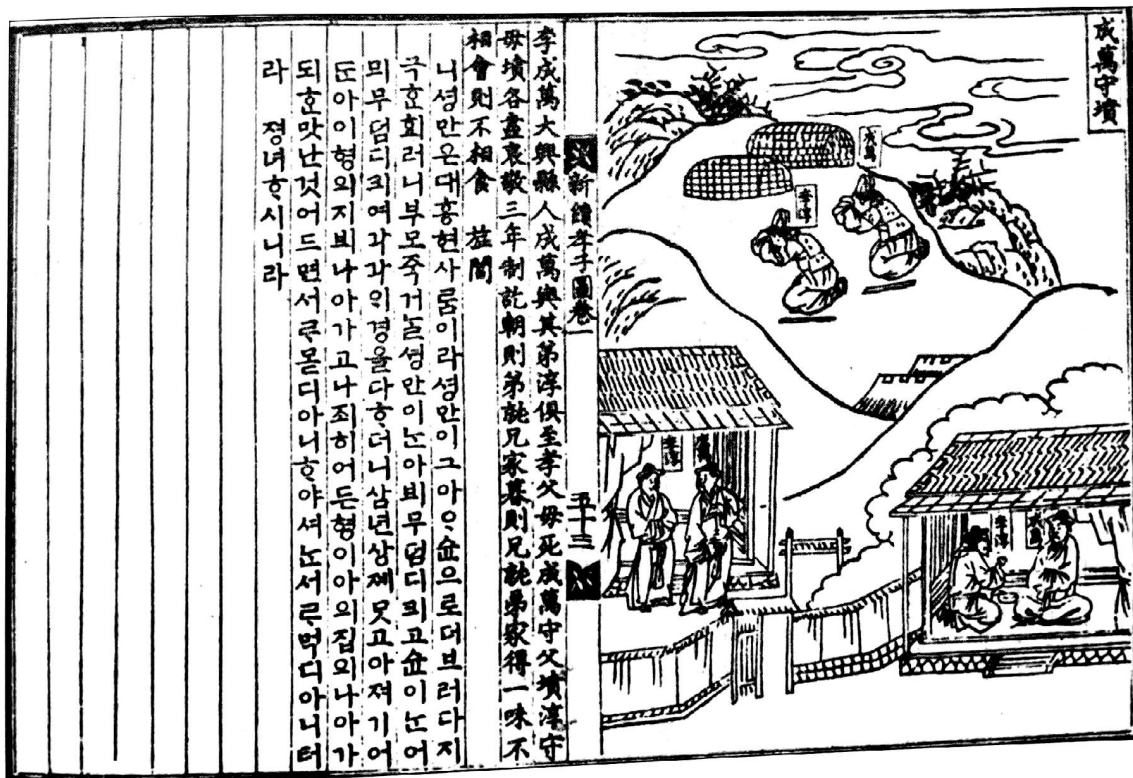 成萬守墳
成萬
李淳
成萬
李淳
李淳
新續孝子圖卷一
五十三
李成萬大興縣人成萬與其弟淳俱至孝父母死成萬守父墳淳守
母墳各盡哀敬三年制訖朝則弟就兄家暮則兄就弟家得一味不
相會則不相食 旌閭
니셩만은대흥현사ᄅᆞᆷ이라셩만이그아ᄋᆞ슌으로더브러다지
극ᄒᆞᆫ회러니부모죽거ᄂᆞᆯ셩만이ᄂᆞᆫ아비무덤디킈고슌이ᄂᆞᆫ어
믜무덤디킈여각각ᄋᆡ경을다ᄒᆞ더니삼년상졔ᄆᆞᆺ고아져기어
ᄃᆞᆫ아이형의지ᄇᆡ나아가고나죄히어든형이아의집의나아가
되ᄒᆞᆫ맛난것어드면서ᄅᆞ몯디아니ᄒᆞ야셔ᄂᆞᆫ서ᄅᆞ먹디아니터
라 졍녀ᄒᆞ시니라